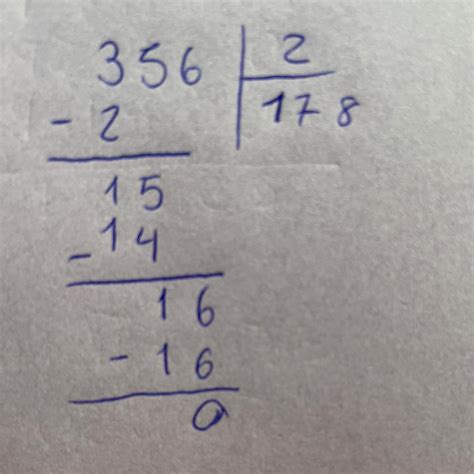 356 2
- 2 178
15
- 14
16
- 16
0